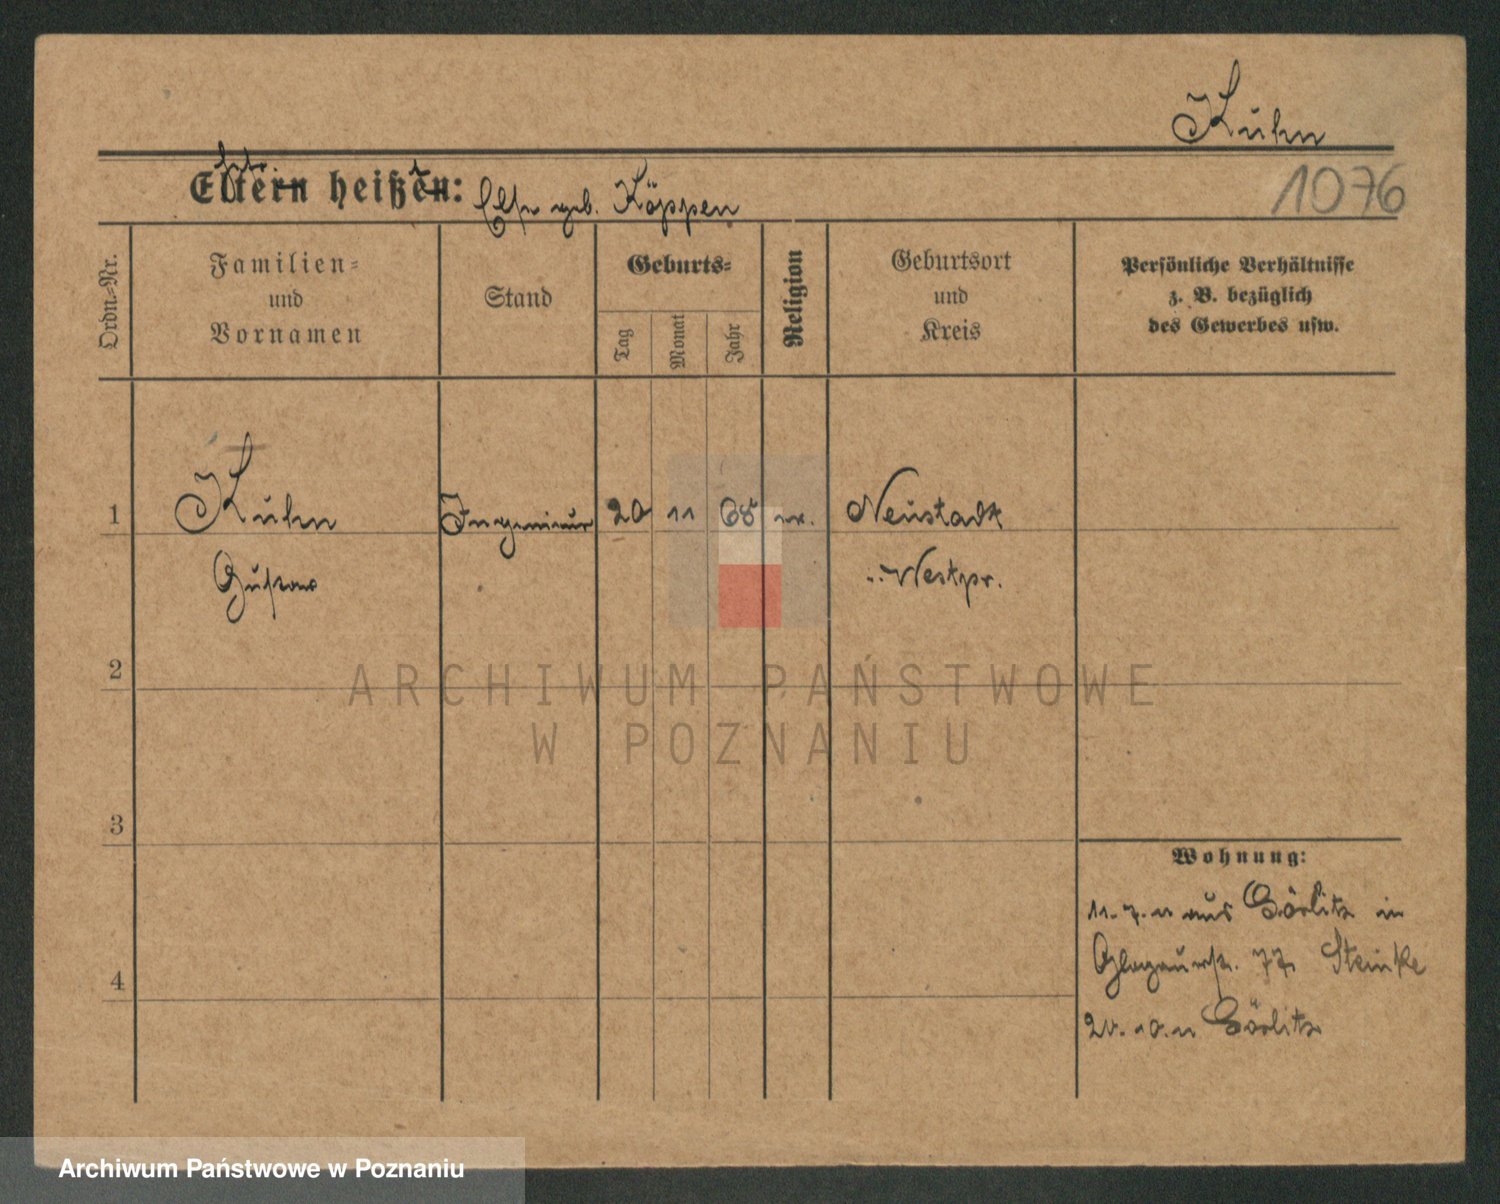 Kuhn
Eltern heißen: Else geb. Köppen
1076
Ordn.-Nr.
Familien-
und
Vornamen
Stand
Geburts-
Tag
Monat
Jahr
Religion
Geburtsort
und
Kreis
Persönliche Verhältnisse
z. B. bezüglich
des Gewerbes usw.
1
Kuhn
Ingenieur
20
11
68
ev.
Neustadt
Gustav
i. Westpr.
2
ARCHIWUM PAŃSTWOWE
W POZNANIU
3
Wohnung:
11. 7. 11 aus Görlitz in
Glogauerstr. 77 Steinke
4
20. 10. 11 Görlitz
Archiwum Państwowe w Poznaniu